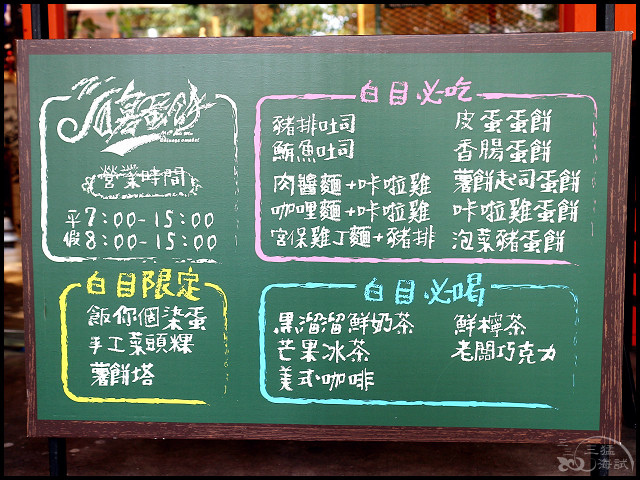 營業時間
平7:00-15:00
假8:00-15:00
白目必吃
豬排吐司
鮪魚吐司
肉醬麵+咔啦雞
咖哩麵+咔啦雞
宮保雞丁麵+豬排
皮蛋蛋餅
香腸蛋餅
薯餅起司蛋餅
咔啦雞蛋餅
泡菜豬蛋餅
白目限定
飯你個柒蛋
手工菜頭粿
薯餅塔
白目必喝
黑溜溜鮮奶茶
芒果冰茶
美式咖啡
鮮檸茶
老闆巧克力
三猛
海試